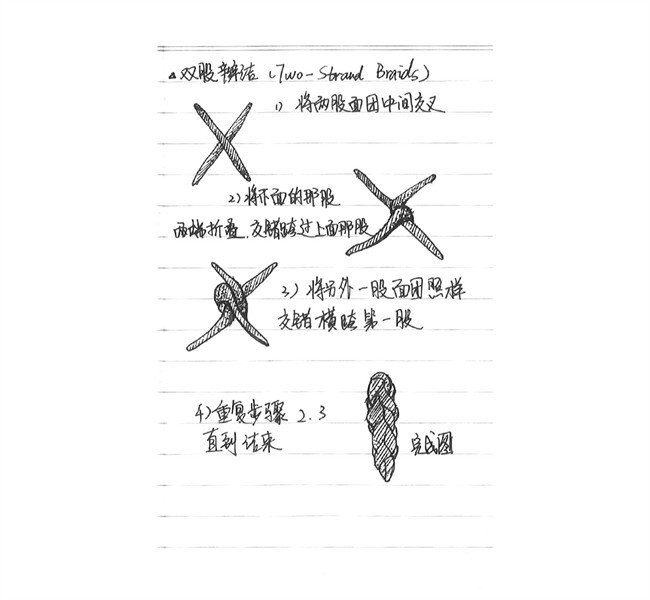 ▲双股辫结 (Two-Strand Braids)
1) 将两股面团中间交叉
2) 将下面的那股
两端折叠，交错跨过上面那股
3) 将另外一股面团照样
交错横跨第一股
4) 重复步骤 2.3
直到结束
完成图